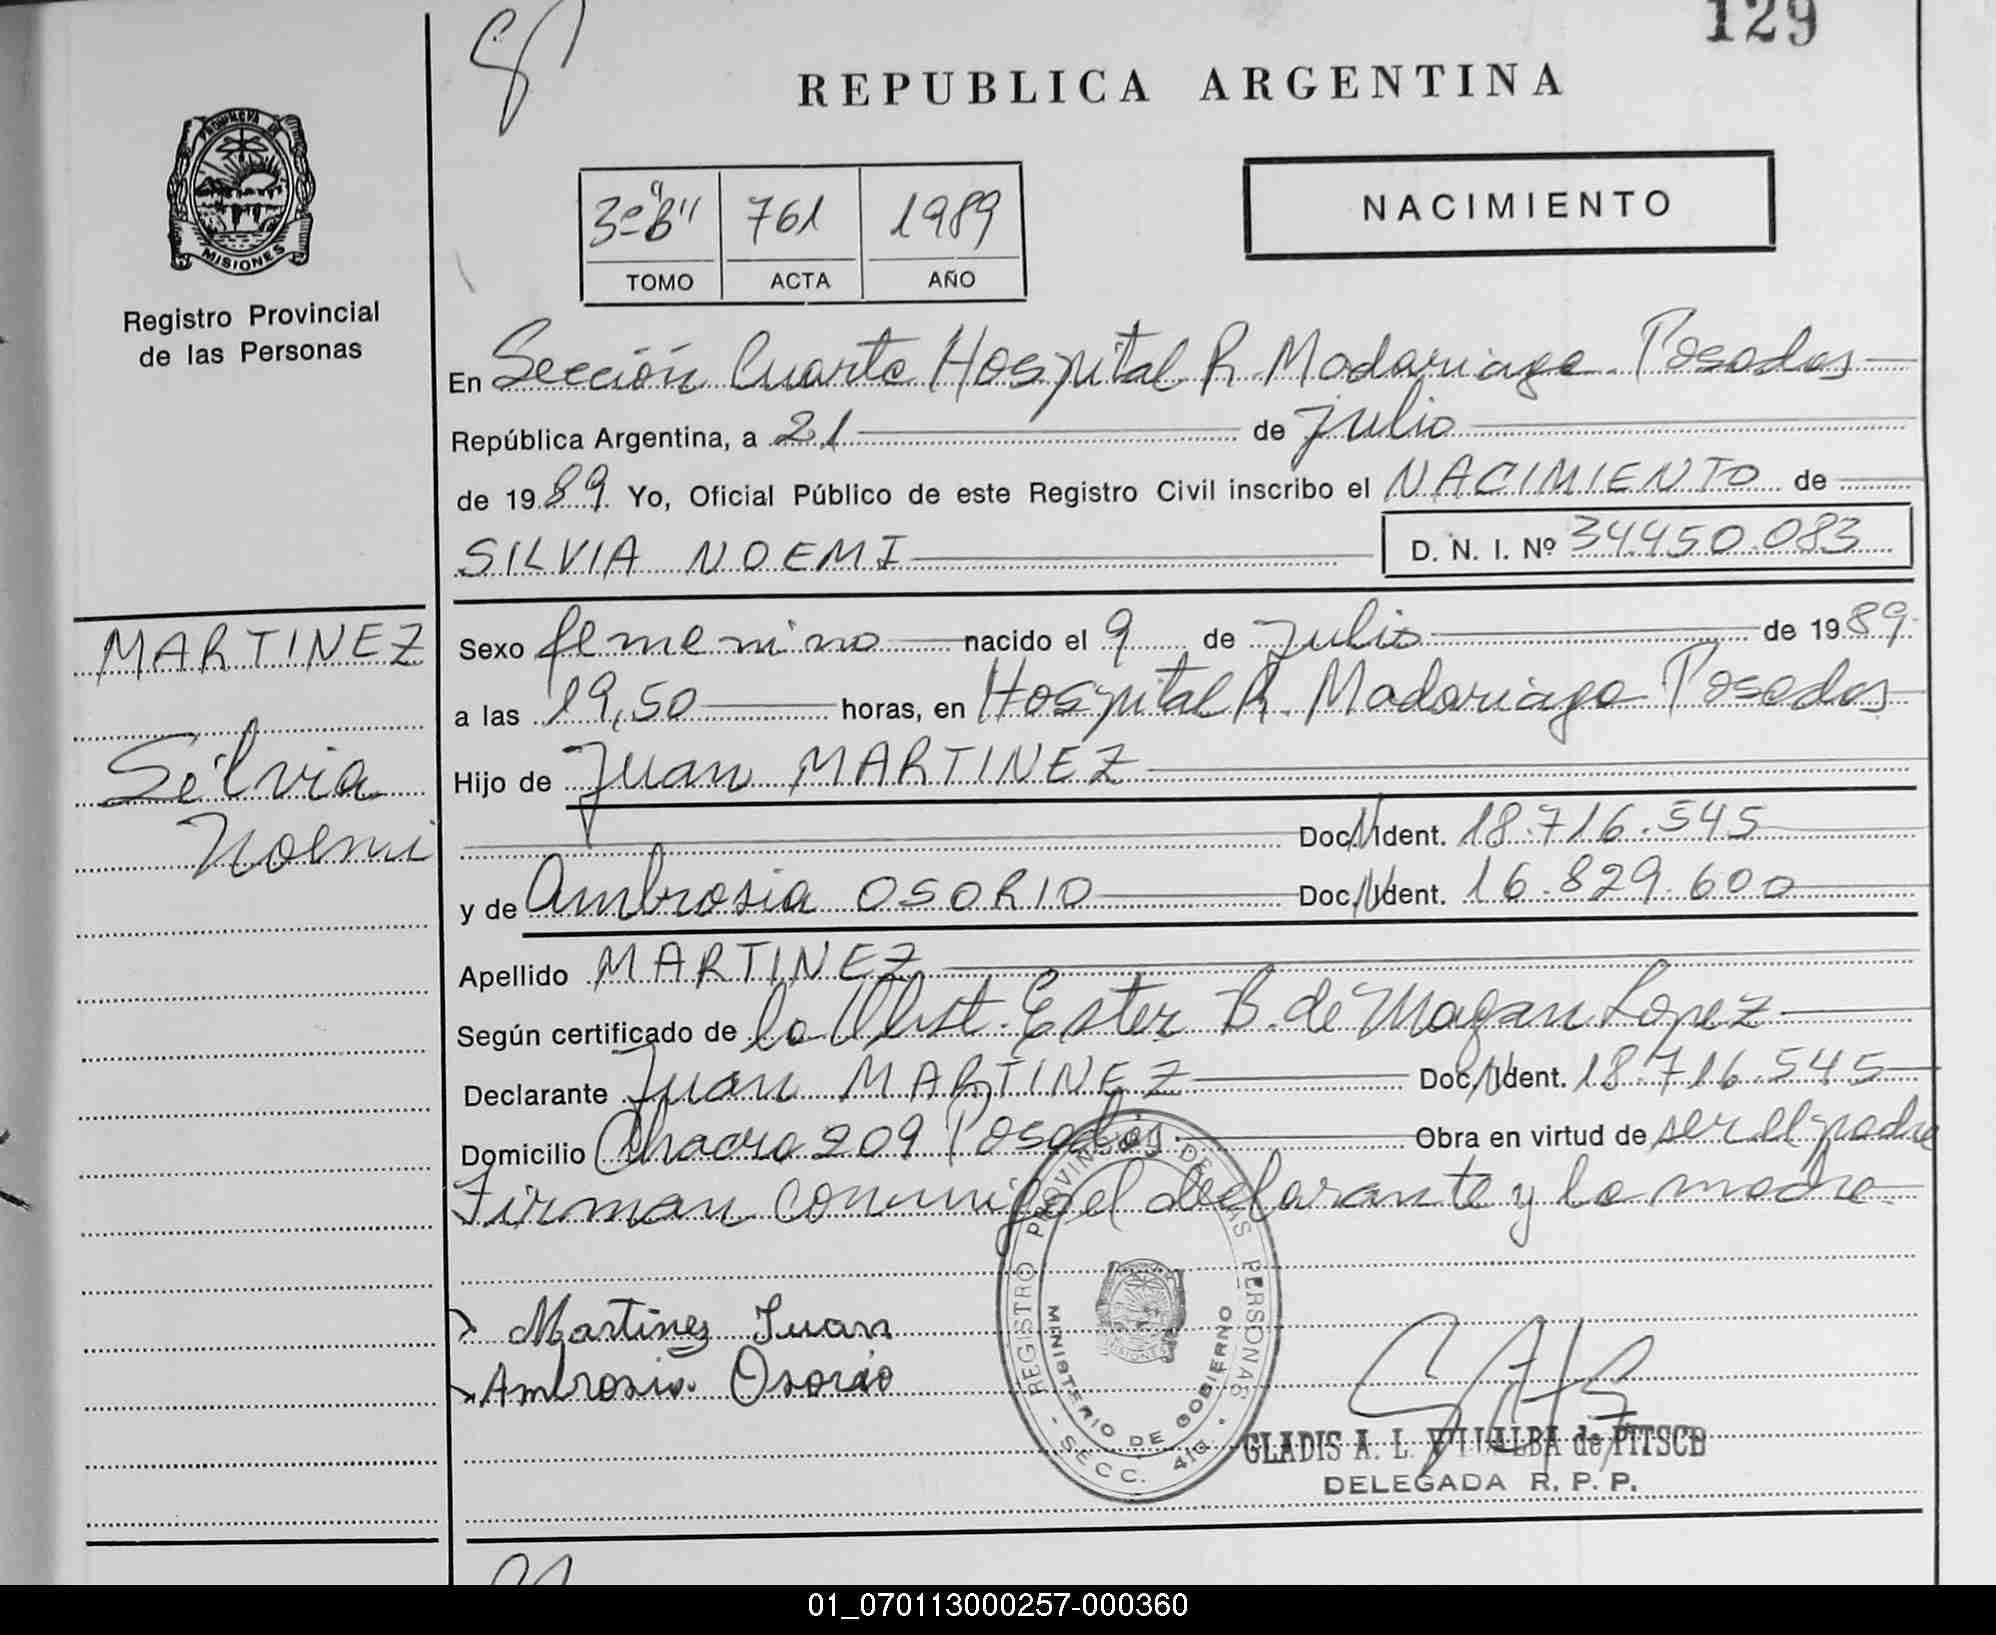 129
REPUBLICA ARGENTINA
PROVINCIA DE
MISIONES
Registro Provincial
de las Personas
3º "B" 761 1989
TOMO ACTA AÑO
NACIMIENTO
En Sección Cuarta Hospital R. Madariaga. Posadas
República Argentina, a 21 de Julio
de 1989. Yo, Oficial Público de este Registro Civil inscribo el NACIMIENTO de
SILVIA NOEMI D. N. I. Nº 34.450.083
MARTINEZ
Silvia
Noemi
Sexo femenino nacido el 9 de Julio de 1989
a las 19,50 horas, en Hospital R. Madariaga Posadas
Hijo de Juan MARTINEZ
Doc. N. Ident. 18.716.545
y de Ambrosia OSORIO Doc. N. Ident. 16.829.600
Apellido MARTINEZ
Según certificado de la Obst. Ester B. de Magan Lopez
Declarante Juan MARTINEZ Doc. N. Ident. 18.716.545
Domicilio Chacra 209 Posadas. Obra en virtud de ser el padre
Firman conmigo el declarante y la madre.
Martinez Juan
Ambrosia Osorio
REGISTRO PROVINCIAL DE LAS PERSONAS
MINISTERIO DE GOBIERNO
MISIONES
- SECC. 4ta. -
GLADIS A. L. VILLALBA de PITSCH
DELEGADA R. P. P.
01_070113000257-000360